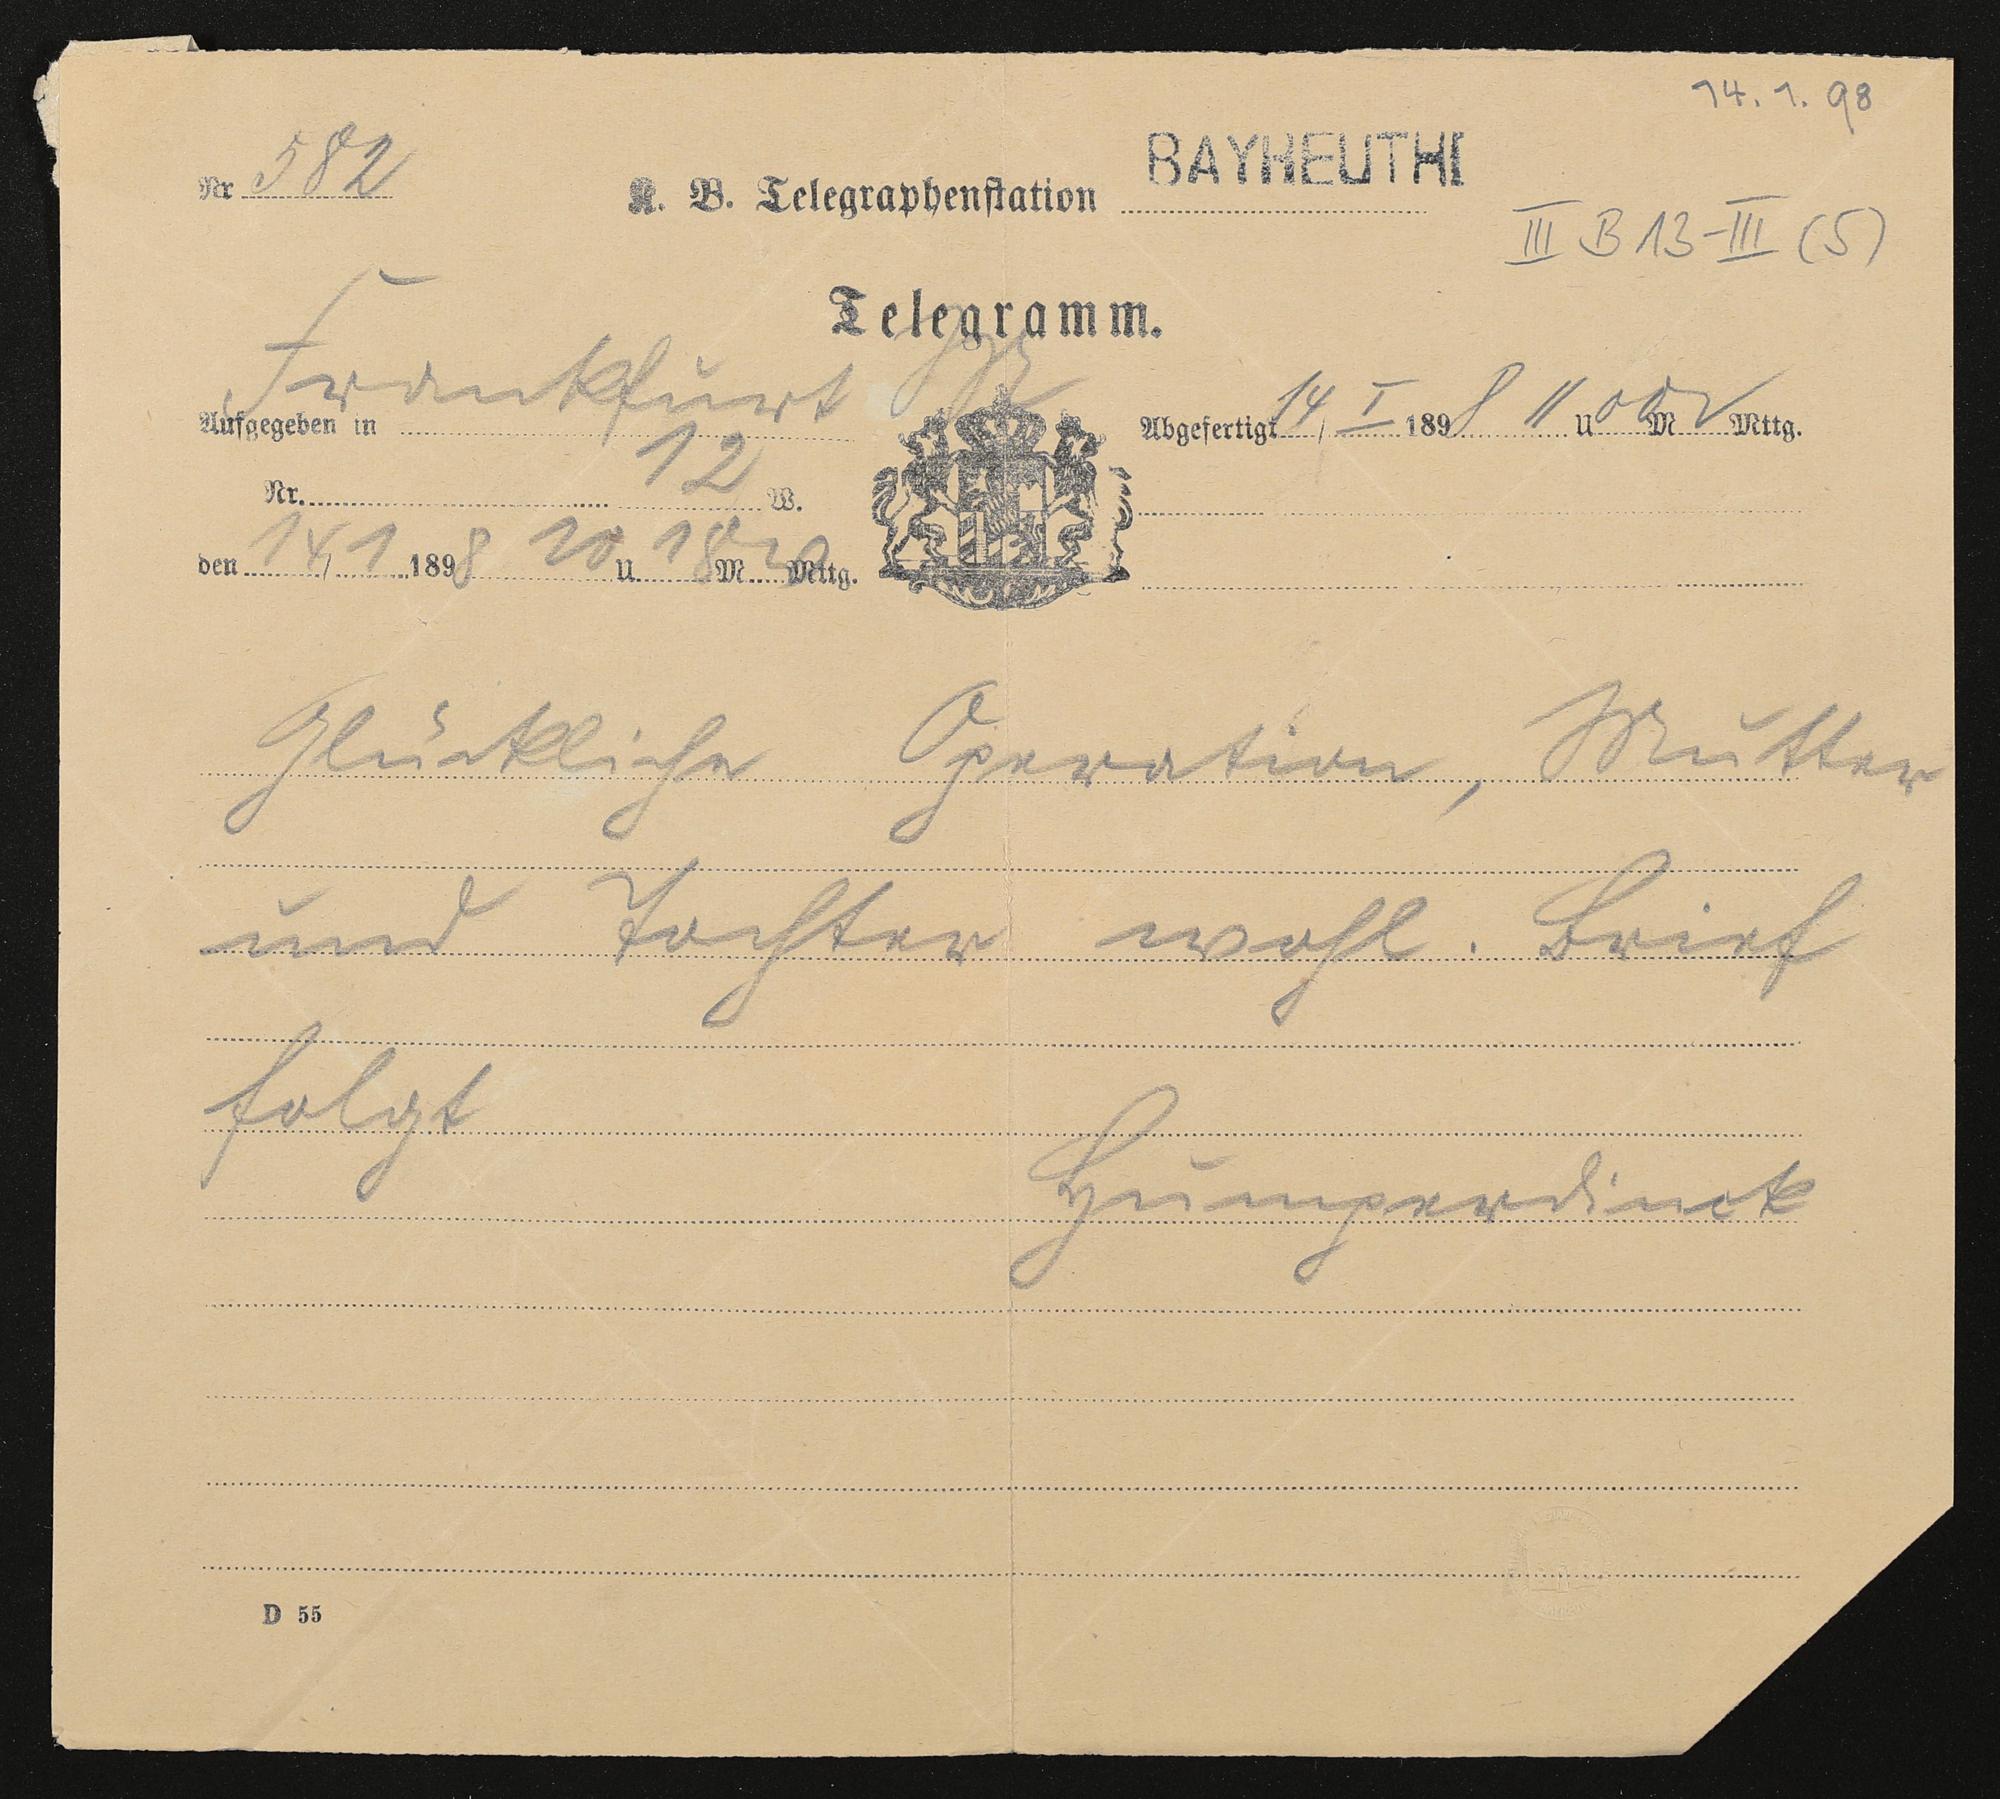 14. 1. 98
Nr 582
K. B. Telegraphenstation BAYREUTH
III B 13-III (5)
Telegramm.
Aufgegeben in Frankfurt
Abgefertigt 14/I 1898 11 U 00 M V Mttg.
Nr. 12 W.
den 14/1 1898 10 U 18 M V Mttg.
Glückliche Operation, Mutter
und Tochter wohl. Brief
folgt
Humperdinck
D 55